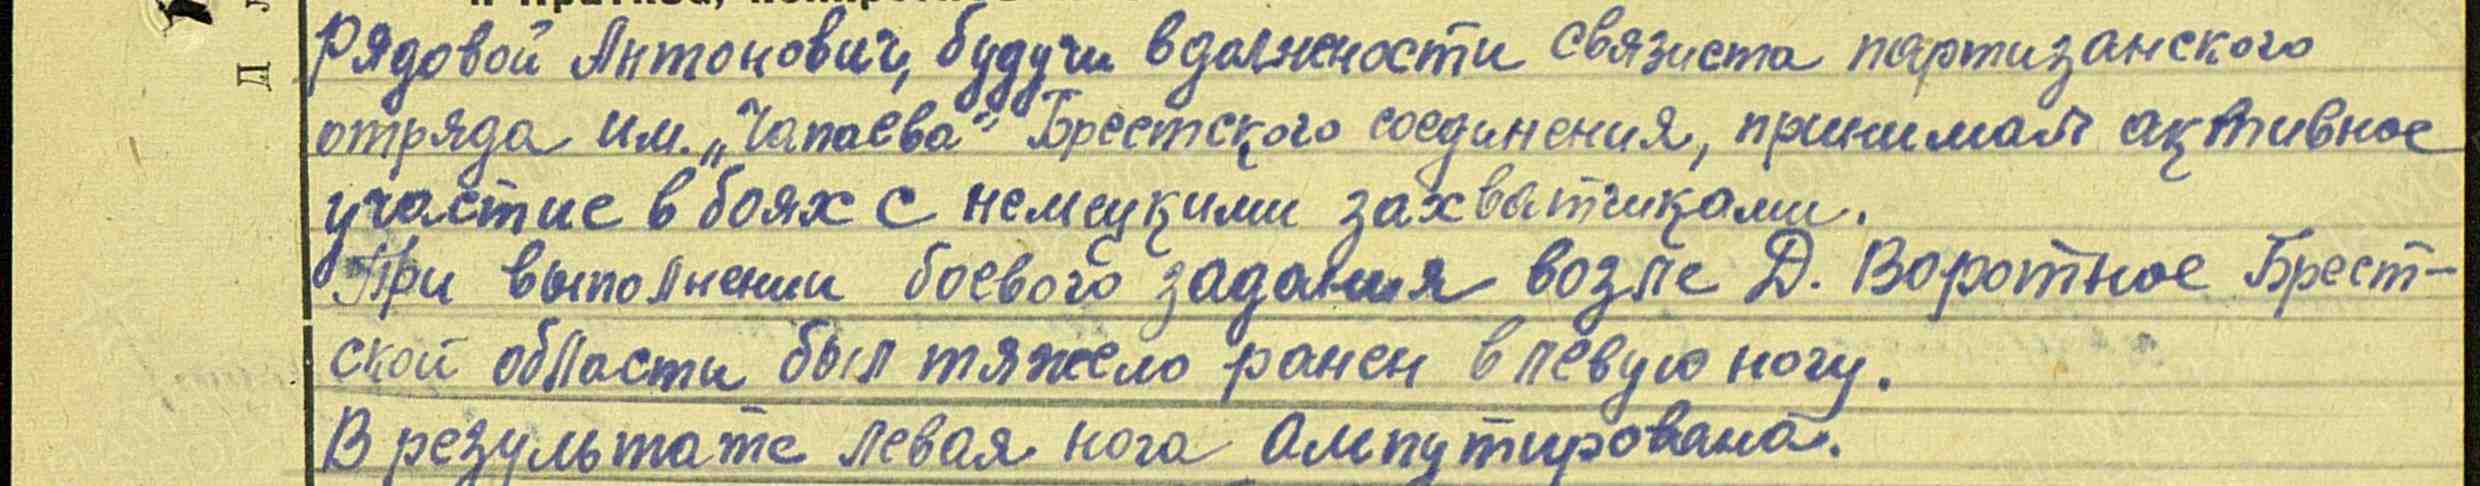 Рядовой Антонович, будучи в должности связиста партизанского
отряда им. „Чапаева" Брестского соединения, принимал активное
участие в боях с немецкими захватчиками.
При выполнении боевого задания возле Д. Воротное Брест-
ской области был тяжело ранен в левую ногу.
В результате левая нога ампутирована.